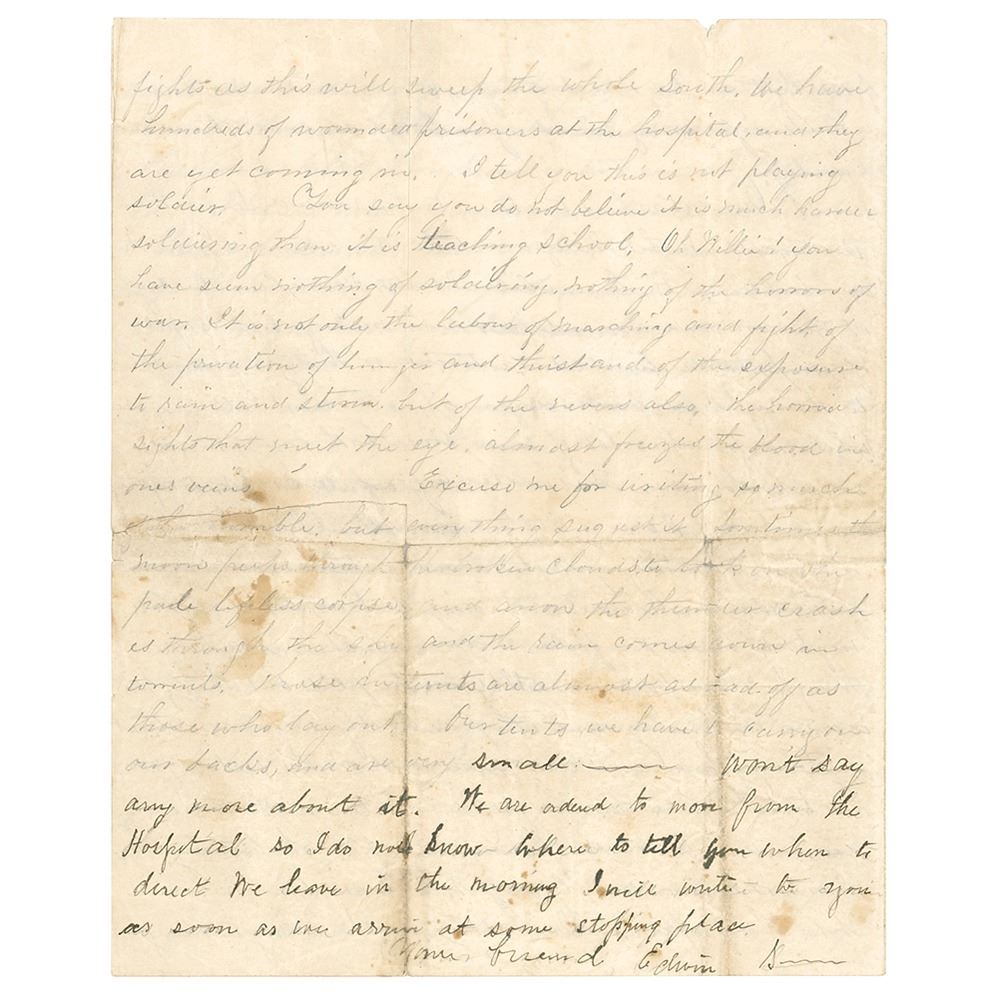 fights as this will sweep the whole South. We have
hundreds of wounded prisoners at the hospital, and they
are yet coming in. I tell you this is not playing
soldier. You say you do not believe it is much harder
soldiering than it is teaching school. Oh Willie! you
have seen nothing of soldiering, nothing of the horrors of
war. It is not only the labour of marching and fight, of
the privation of hunger and thirst and of the exposure
to rain and storm but of the also, the horrid
sights that meet the eye, almost freezes the blood in
ones veins Excuse me for writing so much
but every thing suggest it Sometimes the
moon peeps through the broken clouds to look on the
pale lifeless corpse and anon the thunder crash
es through the sky and the rain comes down in
torrents. Those in tents are almost as bad off as
those who lay out. Our tents we have to carry on
our backs, and are very small. Won't say
any more about it. We are orderd to move from the
Hospital so I do not know where to tell you when to
direct We leave in the morning I will write to you
as soon as we arrive at some stopping place
Your friend Edwin